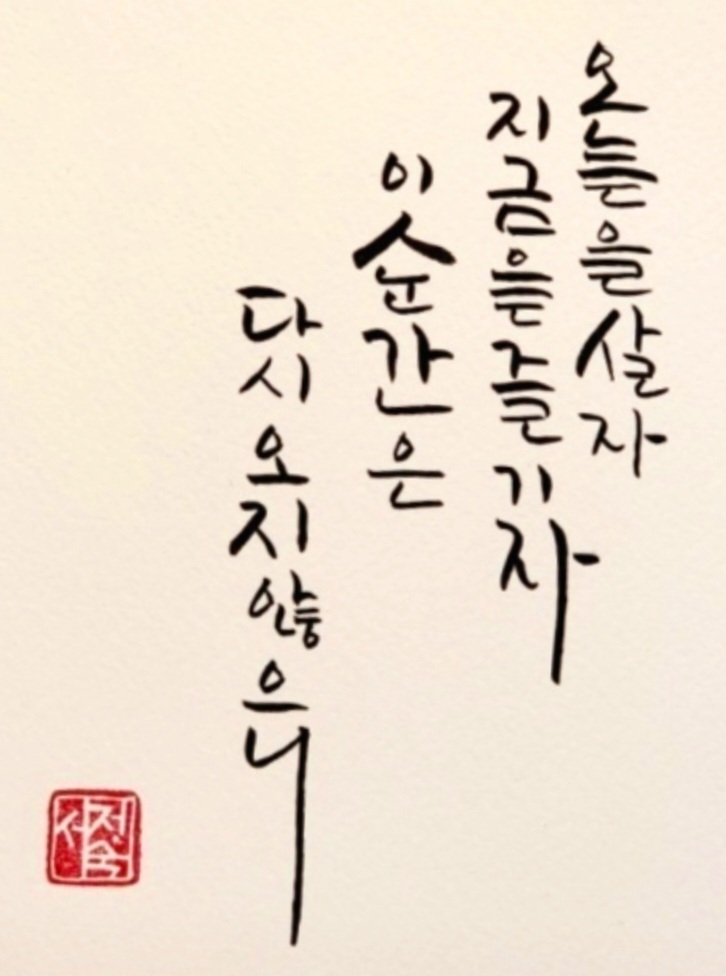 오늘을 살자
지금을 즐기자
이 순간은
다시 오지 않으니